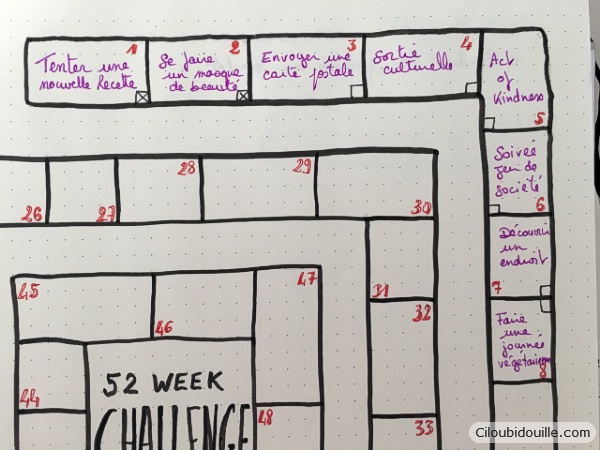 1
Tenter une
nouvelle Recette
2
Se faire
un masque
de beauté
3
Envoyer une
carte postale
4
Sortie
culturelle
Act
of
Kindness
5
Soirée
jeu de
société
6
Découvrir
un
endroit
7
Faire
une
journée
végétarienne
8
26
27
28
29
30
31
32
33
44
45
46
47
48
52 WEEK
CHALLENGE
Ciloubidouille.com